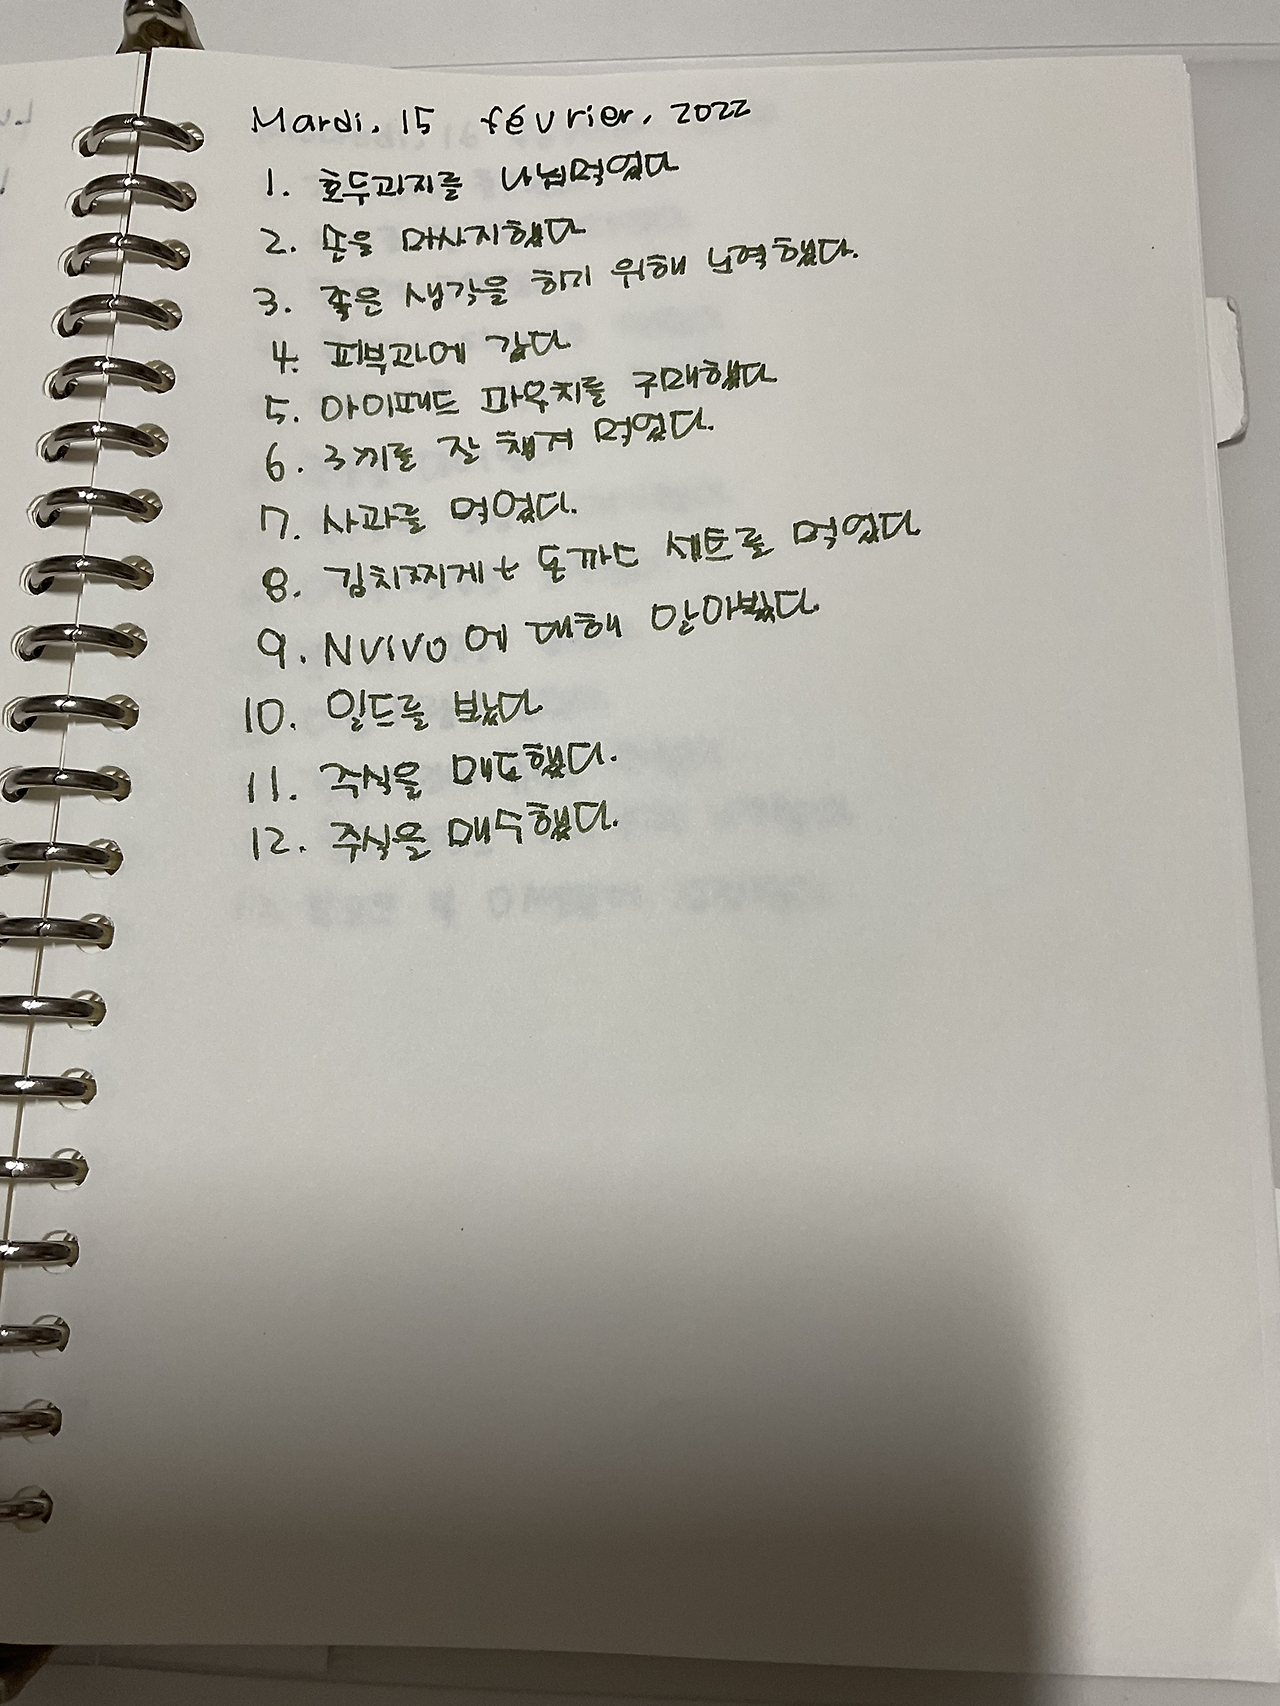 Mardi, 15 février, 2022
1. 호두과자를 냠냠먹었다
2. 손을 마사지했다
3. 좋은 생각을 하기 위해 노력했다.
4. 피부과에 갔다
5. 아이패드 파우치를 구매했다
6. 3끼를 잘 챙겨 먹었다.
7. 사과를 먹었다.
8. 김치찌게+ 돈까스 세트를 먹었다
9. NVIVO에 대해 알아봤다
10. 일드를 봤다
11. 주식을 매도했다.
12. 주식을 매수했다.